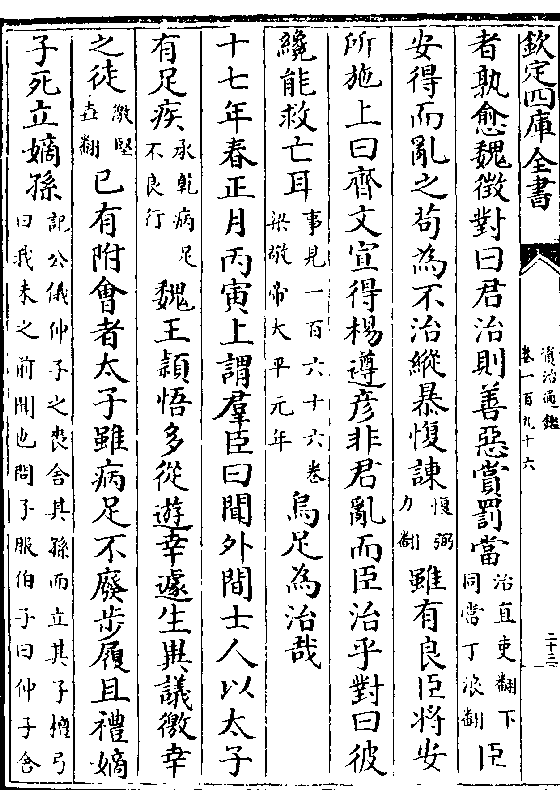 欽定四庫全書
資治通鑑
卷一百九十六
二十三
者孰愈魏徵對曰君治則善惡賞罰當治直吏翻下同當丁浪翻臣
安得而亂之苟為不治縱暴愎諫愎弼力翻雖有良臣將安
所施上曰齊文宣得楊遵彥非君亂而臣治乎對曰彼
纔能救亡耳事見一百六十六卷梁敬帝太平元年烏足為治哉
十七年春正月丙寅上謂羣臣曰聞外間士人以太子
有足疾承乾病足不良行魏王穎悟多從遊幸遽生異議徼幸
之徒徼堅堯翻已有附會者太子雖病足不廢步履且禮嫡
子死立嫡孫記公儀仲子之喪舍其孫而立其子檀弓曰我未之前聞也問子服伯子曰仲子舍